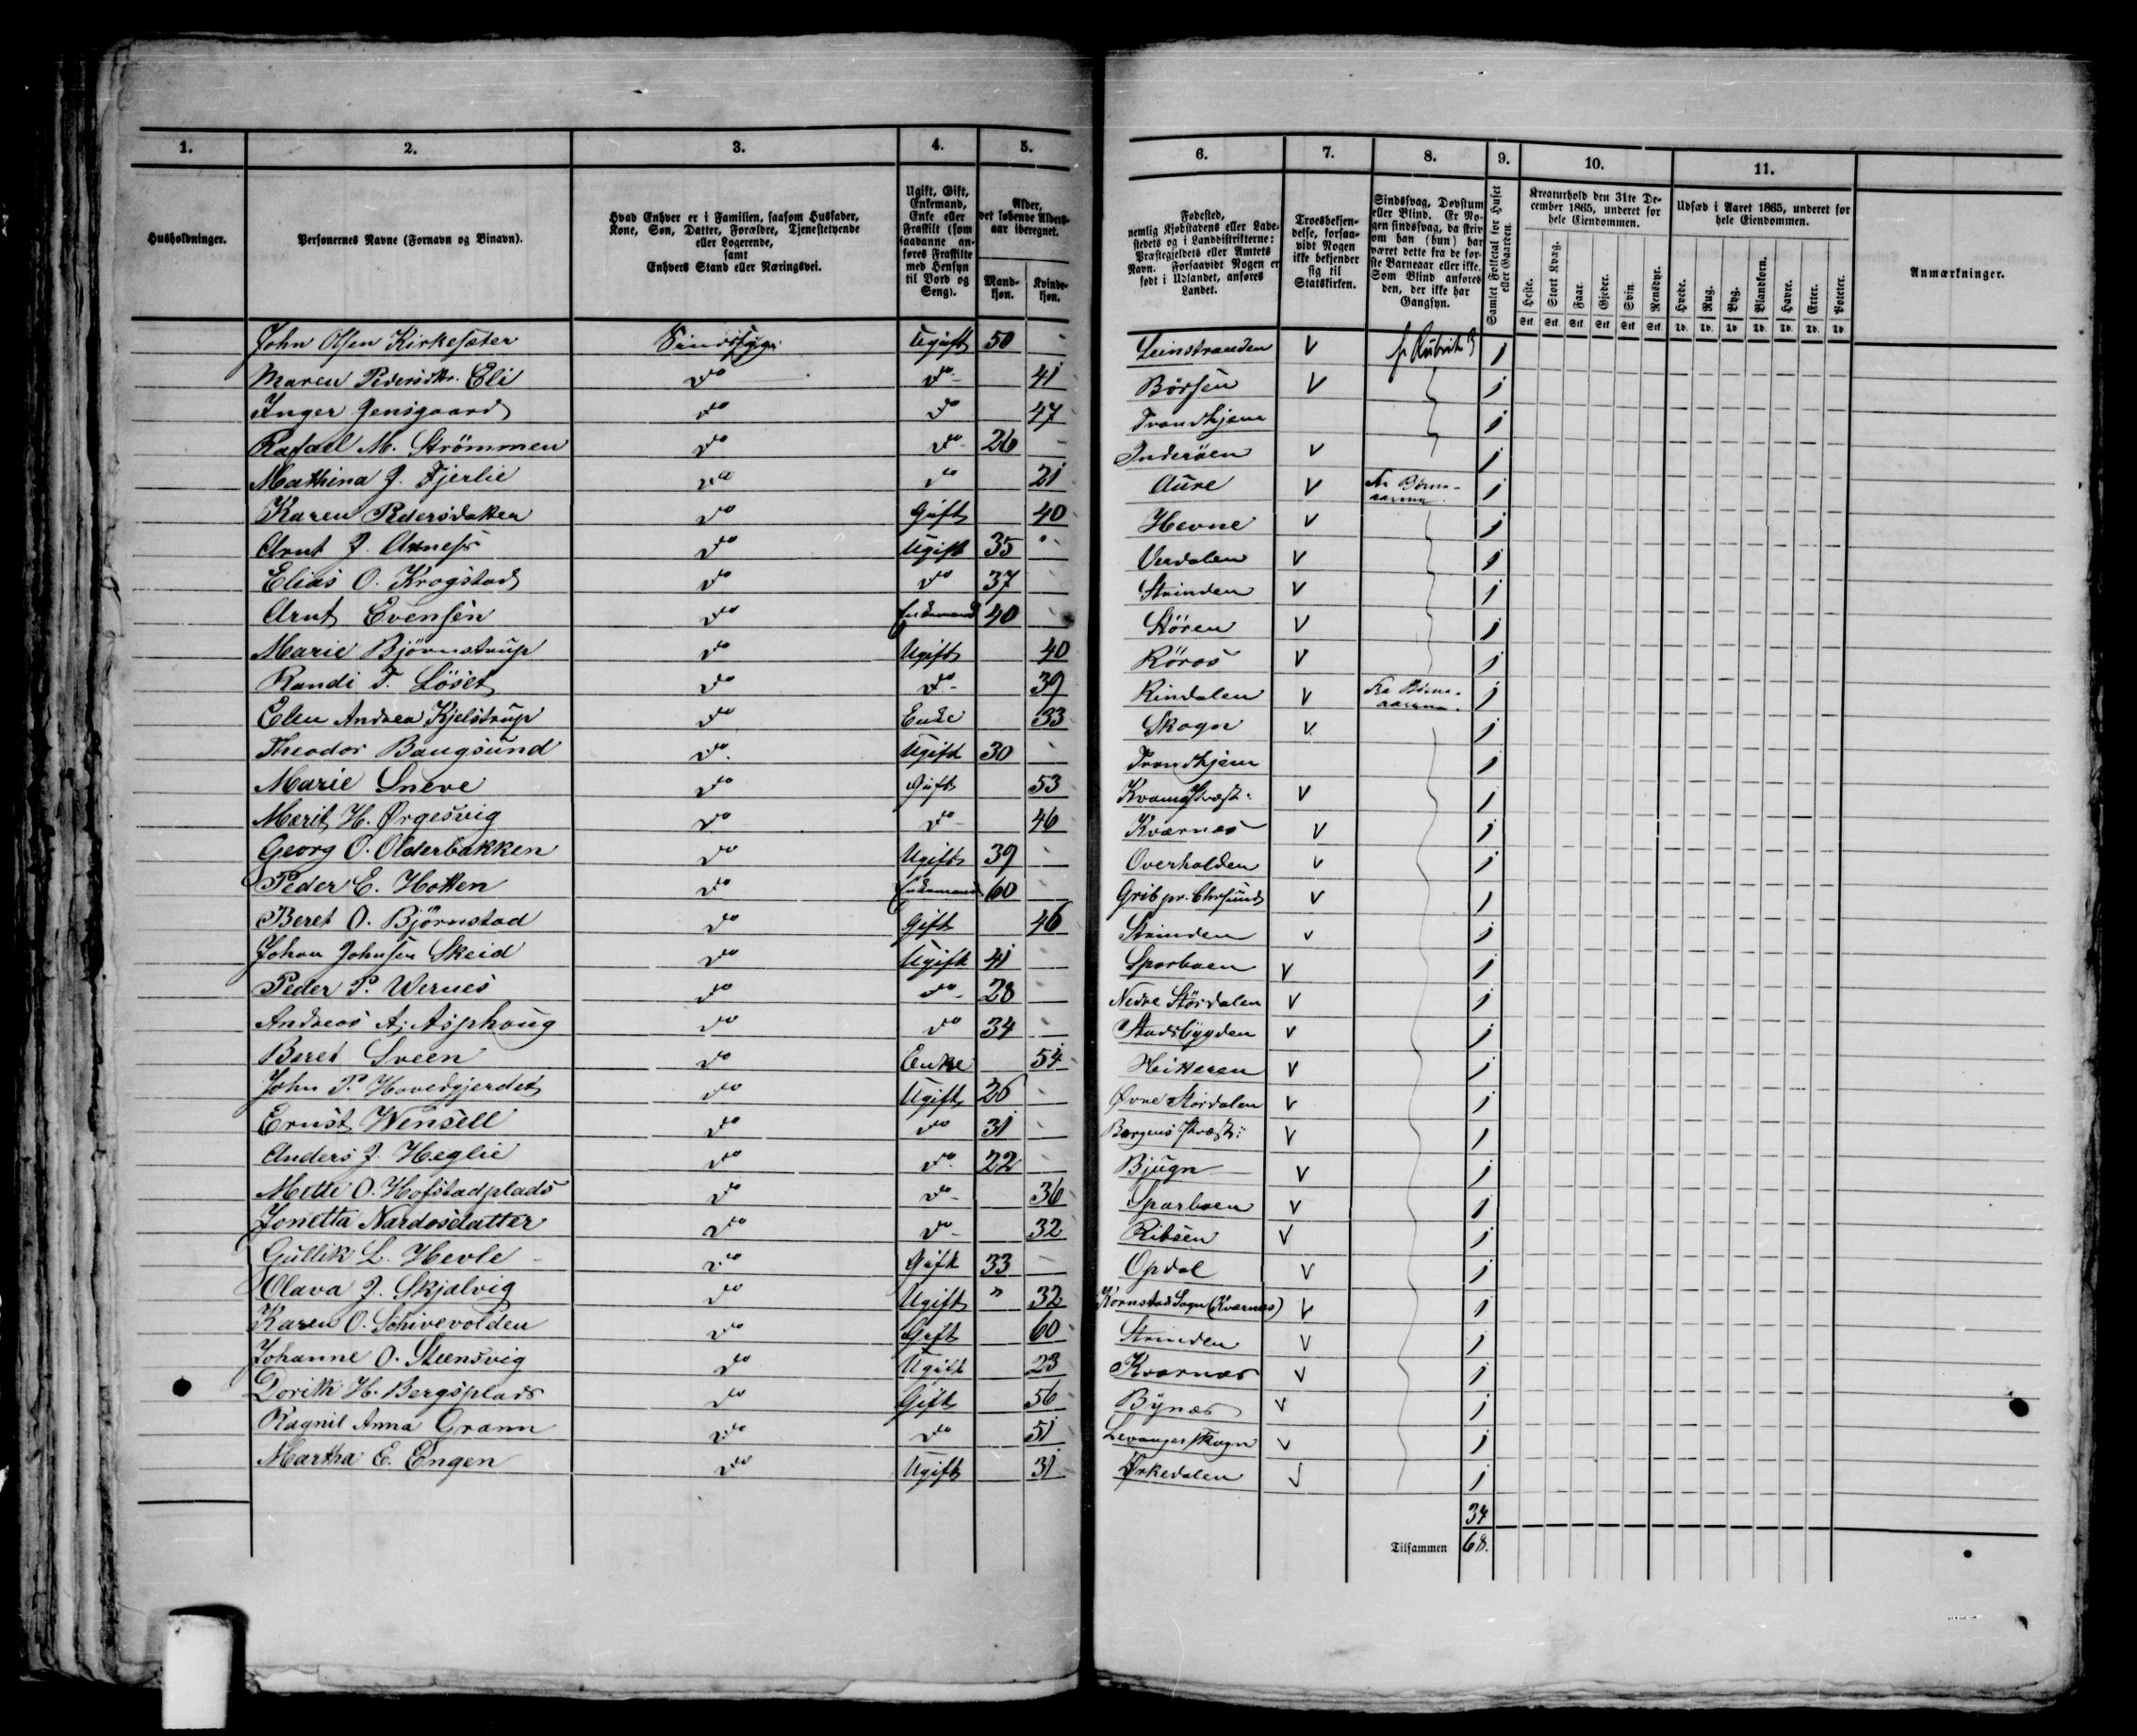 1. 2. 3. 4. 5. 6. 7. 8. 9. 10. 11.
Husholdninger.
Personernes Navne (Fornavn og Binavn).
Hvad Enhver er i Familien, saasom Husfader,
Kone, Søn, Datter, Forældre, Tjenestetyende
eller Logerende,
samt
Enhvers Stand eller Næringsvei.
Ugift, Gift,
Enkemand,
Enke eller
Fraskilt (som
saadanne an-
føres Fraskilte
med Hensyn
til Bord og
Seng).
Alder,
det løbende Alders-
aar iberegnet.
Mand-
kjøn.
Kvinde-
kjøn.
Fødested,
nemlig Kjøbstadens eller Lade-
stedets og i Landdistrikterne:
Præstegjeldets eller Amtets
Navn. Forsaavidt Nogen er
født i Udlandet, anføres
Landet.
Troesbekjen-
delse, forsaa-
vidt Nogen
ikke bekjender
sig til
Statskirken.
Sindssvag, Døvstum
eller Blind. Er No-
gen sindssvag, da skriv
om han (hun) har
været dette fra de før-
ste Barneaar eller ikke.
Som Blind anføres
den, der ikke har
Gangsyn.
Samlet Folketal for Huset
eller Gaarden.
Kreaturhold den 31te De-
cember 1865, underet for
hele Eiendommen.
Heste. Stort Kvæg. Faar. Gjeder. Svin. Rensdyr.
Stk. Stk. Stk. Stk. Stk. Stk.
Udsæd i Aaret 1865, underet for
hele Eiendommen.
Hvede. Rug. Byg. Blandkorn. Havre. Erter. Poteter.
Td. Td. Td. Td. Td. Td. Td.
Anmærkninger.
John Olsen Kirkesæter Sindssyg Ugift 50 Leinstranden V Rubrik 3 1
Maren Pedersdtr. Eli do do 41 Børsen V 1
Inger Jensgaard do do 47 Trondhjem 1
Rafael M. Strömmen do do 26 Inderöen V 1
Mathina J. Fjerlie do do 21 Aure V Fra Børne-
aarene. 1
Karen Pedersdatter do Gift 40 Hevne V 1
Arnt J. Axness do Ugift 35 Verdalen V 1
Elias O. Krogstad do do 37 Strinden V 1
Arnt Evensen do Enkemand 40 Stören V 1
Marie Björnstrup do Ugift 40 Röros V 1
Randi T. Löset do do 39 Rindalen V Fra Børne-
aarene. 1
Elen Andrea Kjelstrup do Enke 33 Skogn V 1
Theodor Bangsund do. Ugift 30 Trondhjem 1
Marie Sneve do Gift 53 V 1
Marit H. Ørgesvig do do 46 Kværnes V 1
Georg O. Olderbakken do Ugift 39 Overhalden V 1
Peder E. Hotten do Enkemand 60 Grib pr. Chrsund V 1
Beret O. Björnstad do Gift 46 Strinden V 1
Johan Johnsen Skeid do Ugift 41 Sparboen V 1
Peder P. Wernes do do 28 Nedre Stördalen V 1
Andreas A. Asphoug do do 34 Stadsbygden V 1
Beret Sveen do Enke 54 Hitteren V 1
John P. Hovedgjerdet do Ugift 26 Øvre Stördalen V 1
Ernst Wensell do do 31 Bergens V 1
Anders J. Heglie do do 22 Bjugn V 1
Mette O. Hofstadplads do do 36 Sparboen V 1
Jonetta Nardosdatter do do 32 V 1
Gullik L. Hevle do Gift 33 Opdal V 1
Olava J. Skjølvig do Ugift " 32 Kornstad Sogn (Kværnes) V 1
Karen O. Schivevolden do Gift 60 Strinden V 1
Johanne O. Steensvig do Ugift 23 Kværnes V 1
Dorith H. Bergsplads do Gift 56 Bynæs V 1
Ragnil Anna Grann do do 51 Levanger Skogn V 1
Martha E. Engen do Ugift 31 Ørkedalen V 1
34
Tilsammen 68.